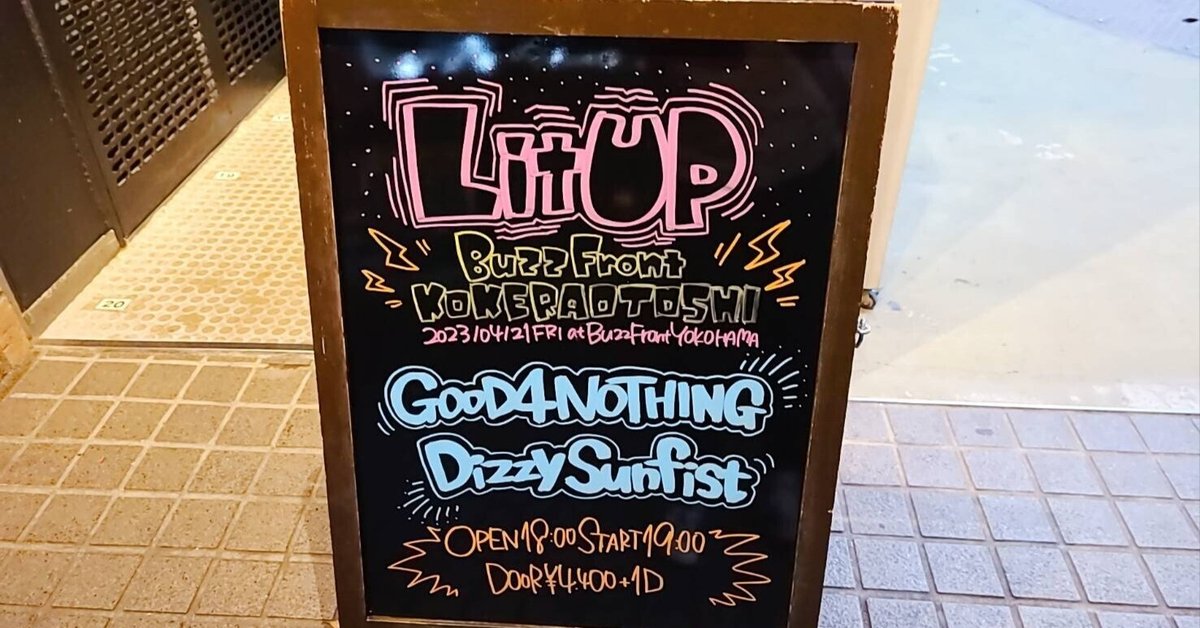 LitUP
Buzz Front
KOKERAOTOSHI
2023/04/21 FRI at BuzzFront YOKOHAMA
GOOD4NOTHING
Dizzy Sunfist
OPEN18:00 START19:00
DOOR ¥4.400+1D
19
20